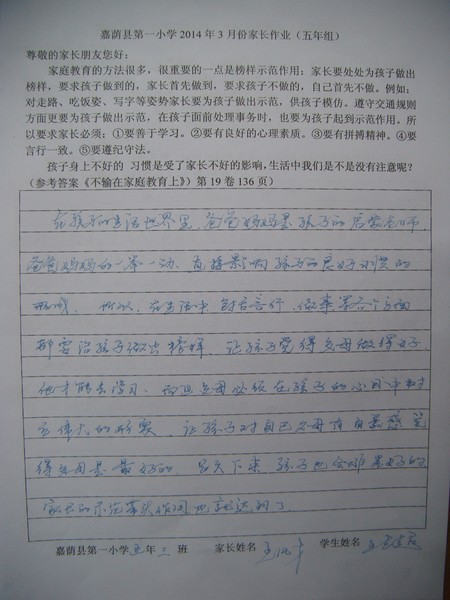 嘉荫县第一小学 2014 年 3 月份家长作业（五年组）
尊敬的家长朋友您好：
家庭教育的方法很多，很重要的一点是榜样示范作用；家长要处处为孩子做出
榜样，要求孩子做到的，家长首先做到，要求孩子不做的，自己首先不做。例如：
对走路、吃饭姿、写字等姿势家长要为孩子做出示范，供孩子模仿。遵守交通规则
方面更要为孩子做出示范，在孩子面前处理事务时，也要为孩子起到示范作用。所
以要求家长必须：①要善于学习。②要有良好的心理素质。③要有拼搏精神。④要
言行一致。⑤要遵纪守法。
孩子身上不好的 习惯是受了家长不好的影响,生活中我们是不是没有注意呢？
（参考答案《不输在家庭教育上》）第 19 卷 136 页）
在孩子的生活世界里，爸爸妈妈是孩子的启蒙老师
爸爸妈妈的一举一动、直接影响孩子的良好习惯的
形成，所以，在生活中 言行、做事等各个方面
都要给孩子做出榜样，让孩子觉得父母做得好
他才能去学习、而且父母必须在孩子的心目中树
立伟大的形象，让孩子对自己父母有自豪感觉
得父母是最好的，久下来，孩子也会 好的
家长的示范带头作用也就达到了
嘉荫县第一小学五年 班 家长姓名 王 学生姓名 王